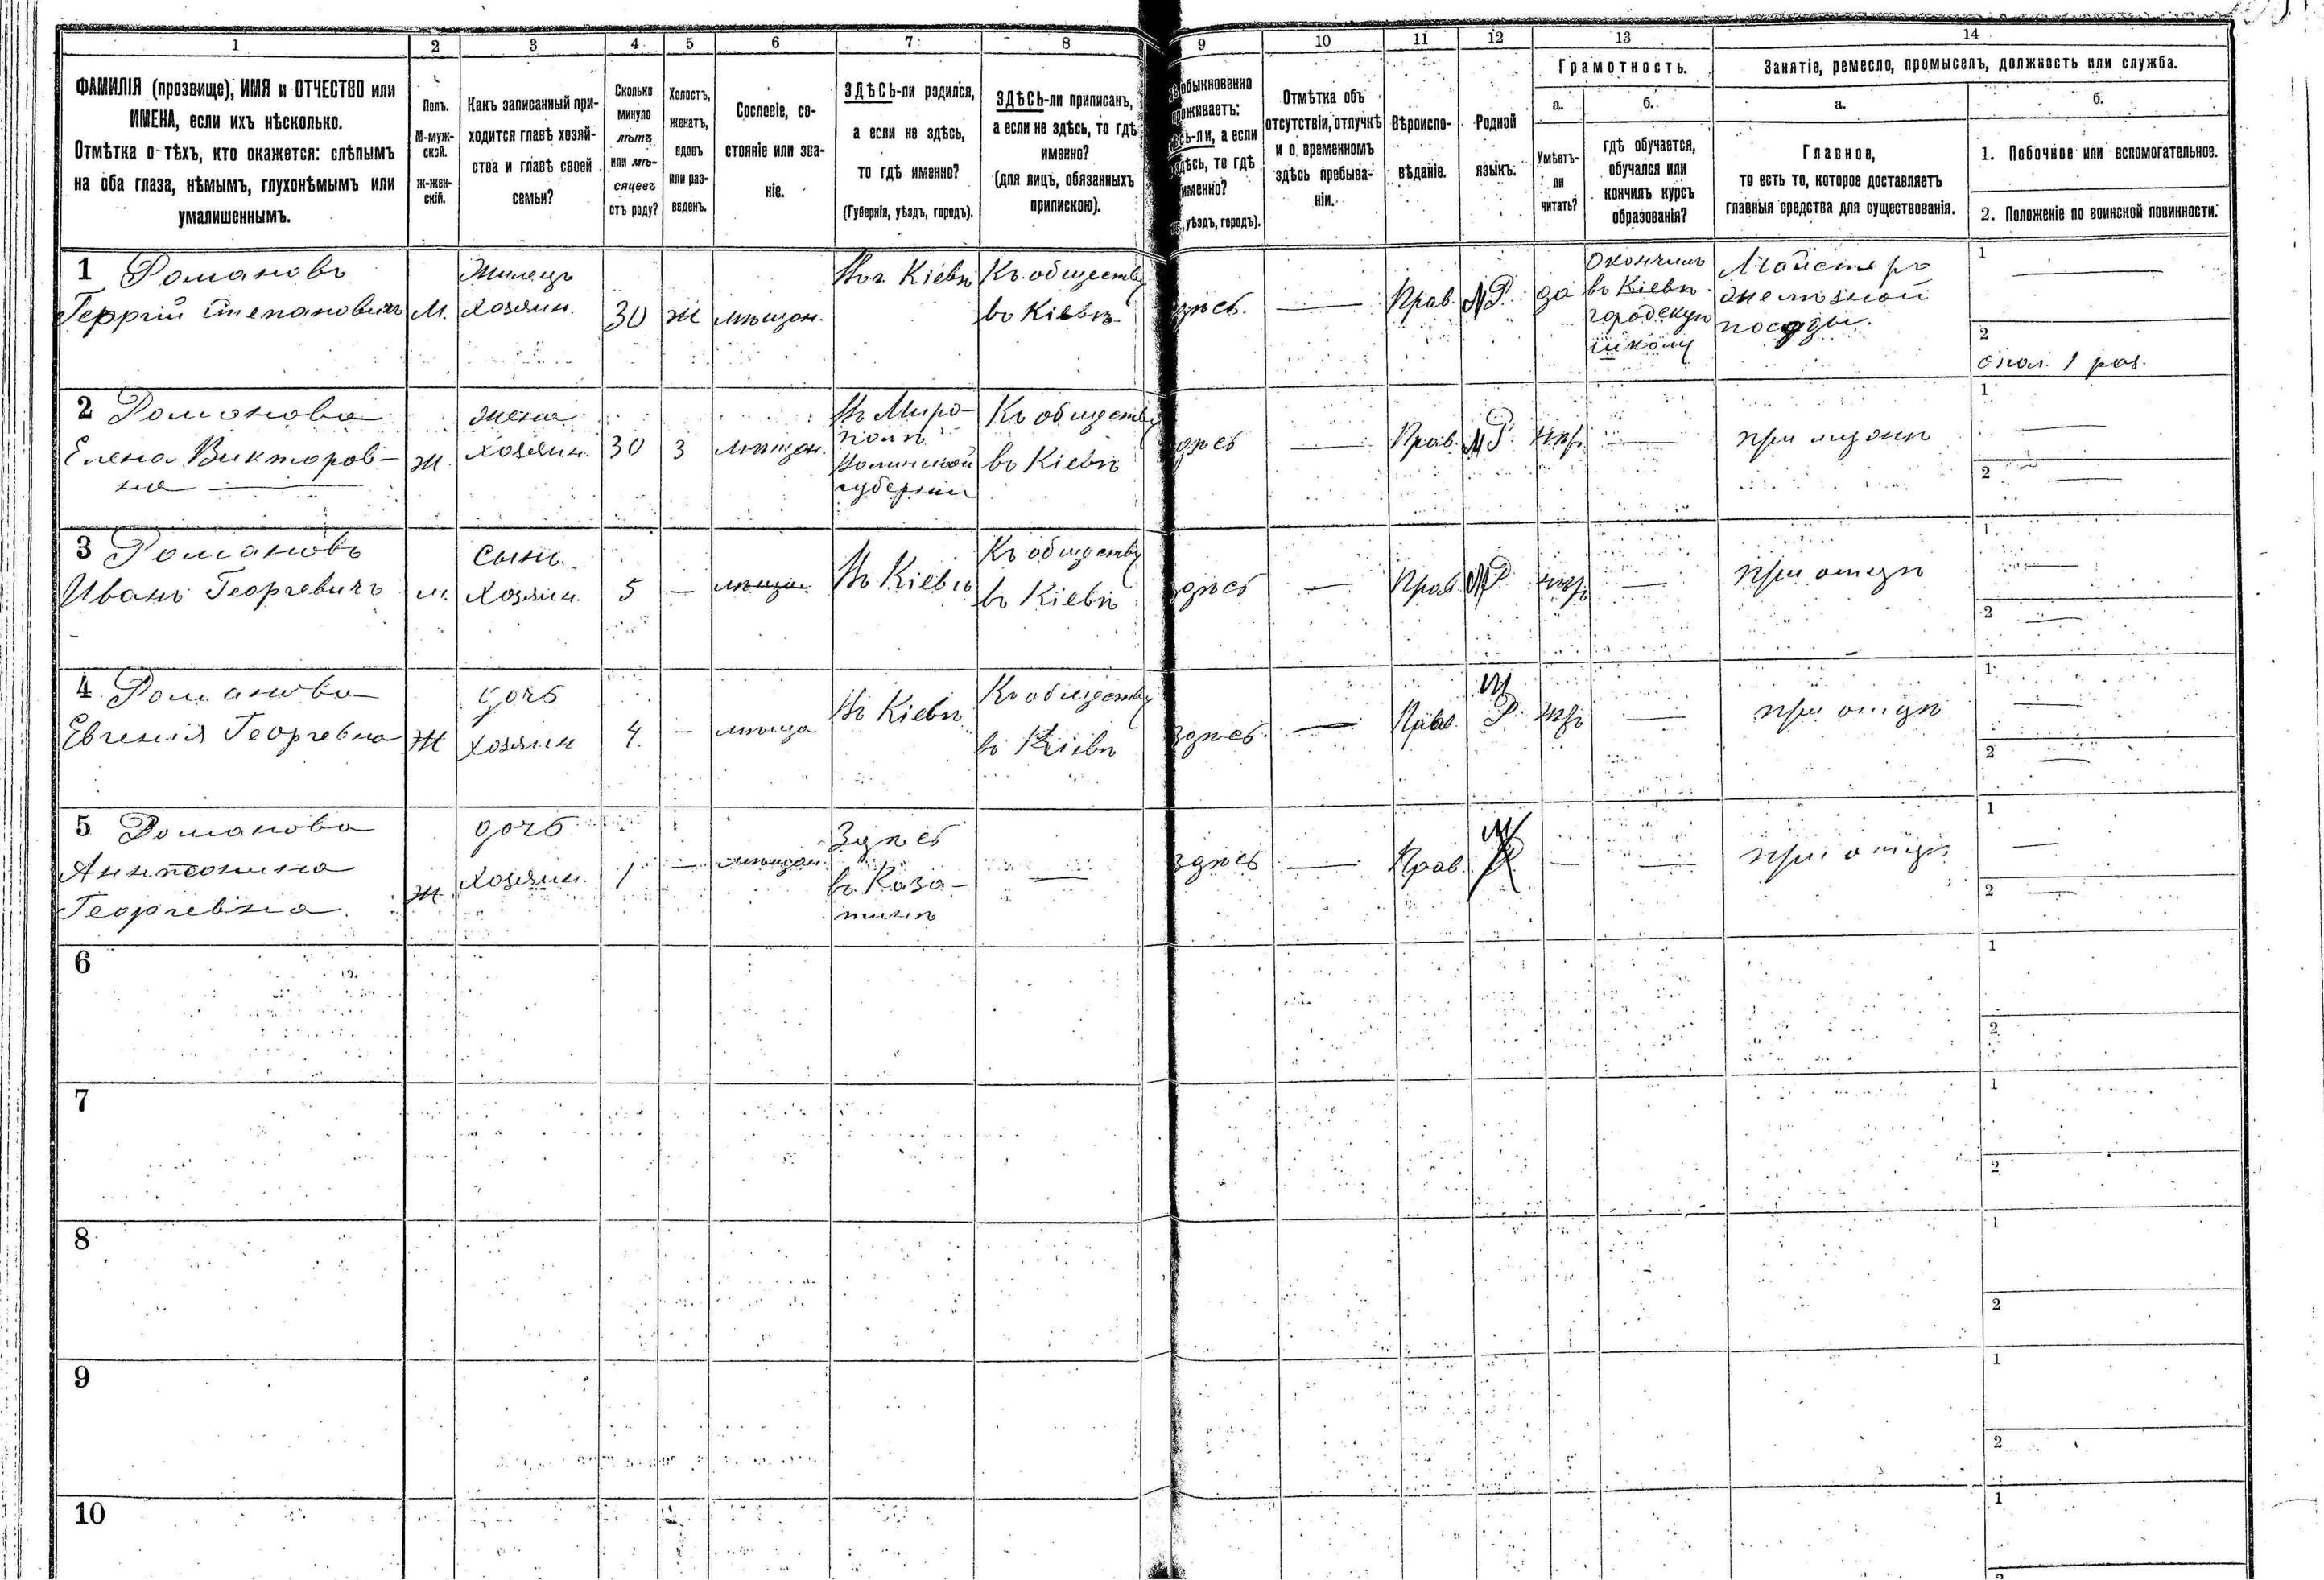 1 2 3 4 5 6 7 8 9 10 11 12 13 14
ФАМИЛІЯ (прозвище), ИМЯ и ОТЧЕСТВО или
ИМЕНА, если ихъ нѣсколько.
Отмѣтка о тѣхъ, кто окажется: слѣпымъ
на оба глаза, нѣмымъ, глухонѣмымъ или
умалишеннымъ.
Полъ.
М-муж-
ской.
Ж-жен-
скій.
Какъ записанный при-
ходится главѣ хозяй-
ства и главѣ своей
семьи?
Сколько
минуло
лѣтъ
или мѣ-
сяцевъ
отъ роду?
Холостъ,
женатъ,
вдовъ
или раз-
веденъ.
Сословіе, со-
стояніе или зва-
ніе.
ЗДѢСЬ-ли родился,
а если не здѣсь,
то гдѣ именно?
(Губернія, уѣздъ, городъ).
ЗДѢСЬ-ли приписанъ,
а если не здѣсь, то гдѣ
именно?
(для лицъ, обязанныхъ
припискою).
обыкновенно
проживаетъ:
здѣсь-ли, а если
не здѣсь, то гдѣ
именно?
уѣздъ, городъ).
Отмѣтка объ
отсутствіи, отлучкѣ
и о временномъ
здѣсь пребыва-
ніи.
Вѣроиспо-
вѣданіе.
Родной
языкъ.
Грамотность.
а.
Умѣетъ-
ли
читать?
б.
гдѣ обучается,
обучался или
кончилъ курсъ
образованія?
Занятіе, ремесло, промыселъ, должность или служба.
а.
Главное,
то есть то, которое доставляетъ
главныя средства для существованія.
б.
1. Побочное или вспомогательное.
2. Положеніе по воинской повинности.
1 Романовъ
Герргій Степановичъ
М.
Жилецъ
хозяин.
30
Ж
мѣщан.
Въ г. Кіевѣ
Къ обществу
въ Кіевѣ
здѣсь.
—
Прав.
Р.
да
Окончилъ
въ Кіевѣ
городскую
школу
Майстръ
желѣзной
посуды.
1 —
2
опол. 1 раз.
2 Романова
Елена Викторов-
на
ж.
жена
хозяин.
30
З
мѣщан.
Въ Миро-
полѣ
Волинской
губерніи
Къ обществу
въ Кіевѣ
здѣсь
—
Прав.
Р.
—
1 —
2 —
3 Романовъ
Иванъ Георгевичъ
м.
Сынъ
хозяин.
5
—
мѣща
Въ Кіевѣ
Къ обществу
въ Кіевѣ
здѣсь
—
Прав.
Р
—
при отцѣ
1 —
2 —
4 Романова
Евгенія Георгевна
Ж
дочь
хозяин
4
—
мѣща
Въ Кіевѣ
Къ обществу
въ Кіевѣ
здѣсь
—
Прав.
Р.
—
при отцѣ
1 —
2 —
5 Романова
Антонина
Георгевна
ж
дочь
хозяин.
1
—
мѣщан
Здѣсь
въ Каза-
тинѣ
—
здѣсь
—
Прав.
Р
—
—
при отцѣ
1 —
2 —
6
1
2
7
1
2
8
1
2
9
1
2
10
1
2